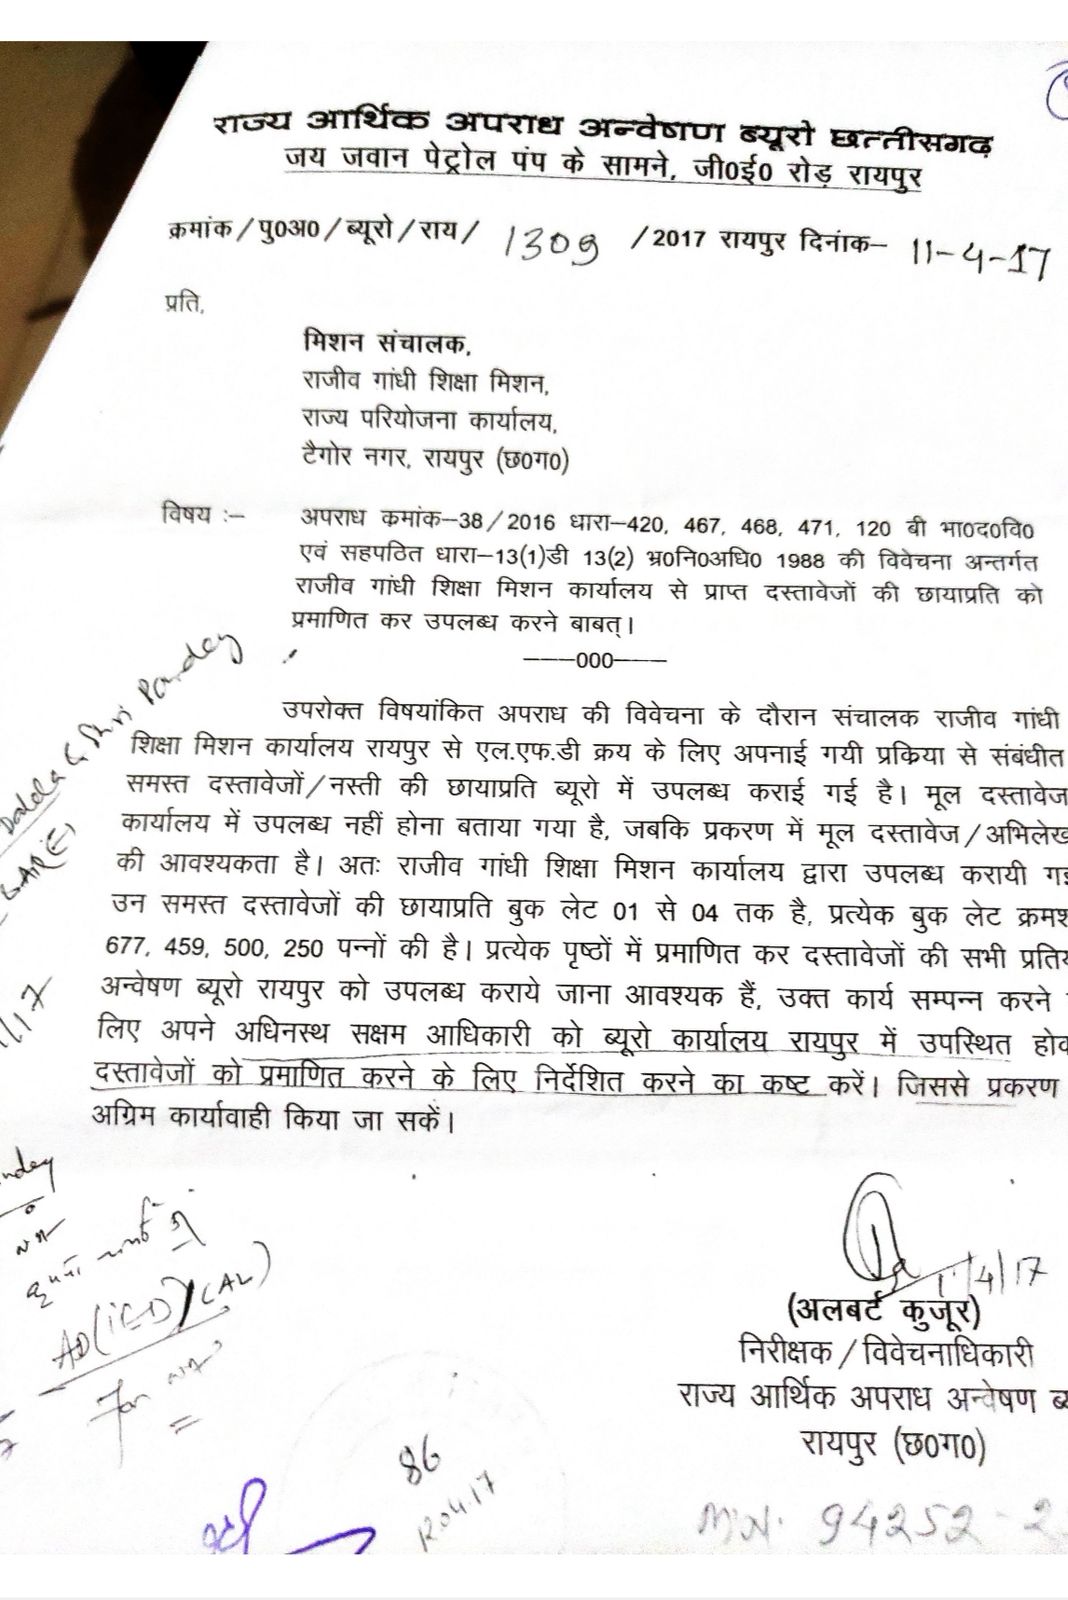 राज्य आर्थिक अपराध अन्वेषण ब्यूरो छत्तीसगढ़
जय जवान पेट्रोल पंप के सामने, जी0ई0 रोड़ रायपुर
क्रमांक/पु0अ0/ब्यूरो/राय/ 1309 /2017 रायपुर दिनांक– 11-4-17
प्रति,
मिशन संचालक,
राजीव गांधी शिक्षा मिशन,
राज्य परियोजना कार्यालय,
टैगोर नगर, रायपुर (छ0ग0)
विषय :– अपराध कमांक–38/2016 धारा–420, 467, 468, 471, 120 बी भा0द0वि0
एवं सहपठित धारा–13(1)डी 13(2) भ्र0नि0अधि0 1988 की विवेचना अन्तर्गत
राजीव गांधी शिक्षा मिशन कार्यालय से प्राप्त दस्तावेजों की छायाप्रति को
प्रमाणित कर उपलब्ध करने बाबत्।
———000———
उपरोक्त विषयांकित अपराध की विवेचना के दौरान संचालक राजीव गांधी
शिक्षा मिशन कार्यालय रायपुर से एल.एफ.डी क्रय के लिए अपनाई गयी प्रकिया से संबंधीत
समस्त दस्तावेजों/नस्ती की छायाप्रति ब्यूरो में उपलब्ध कराई गई है। मूल दस्तावेज
कार्यालय में उपलब्ध नहीं होना बताया गया है, जबकि प्रकरण में मूल दस्तावेज/अभिलेख
की आवश्यकता है। अतः राजीव गांधी शिक्षा मिशन कार्यालय द्वारा उपलब्ध करायी
उन समस्त दस्तावेजों की छायाप्रति बुक लेट 01 से 04 तक है, प्रत्येक बुक लेट
677, 459, 500, 250 पन्नों की है। प्रत्येक पृष्ठों में प्रमाणित कर दस्तावेजों की सभी
अन्वेषण ब्यूरो रायपुर को उपलब्ध कराये जाना आवश्यक हैं, उक्त कार्य सम्पन्न करने
लिए अपने अधिनस्थ सक्षम आधिकारी को ब्यूरो कार्यालय रायपुर में उपस्थित
दस्तावेजों को प्रमाणित करने के लिए निर्देशित करने का कष्ट करें। जिससे प्रकरण
अग्रिम कार्यावाही किया जा सकें।
Shri Pandey
AD(IED)(AL)
11/4/17
(अलबर्ट कुजूर)
निरीक्षक/विवेचनाधिकारी
राज्य आर्थिक अपराध अन्वेषण
रायपुर (छ0ग0)
86
12.04.17
M.N. 94252-2